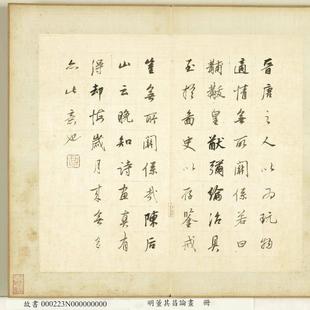 晉唐之人以為玩物
適情無所關係若曰
黼黻皇猷彌綸治具
至於圖史以存鑒戒
豈無所關係哉陳后
山云晚知詩畫真有
得却悔歲月來無多
亦此意也
故書 000223N000000000 明董其昌論畫 冊